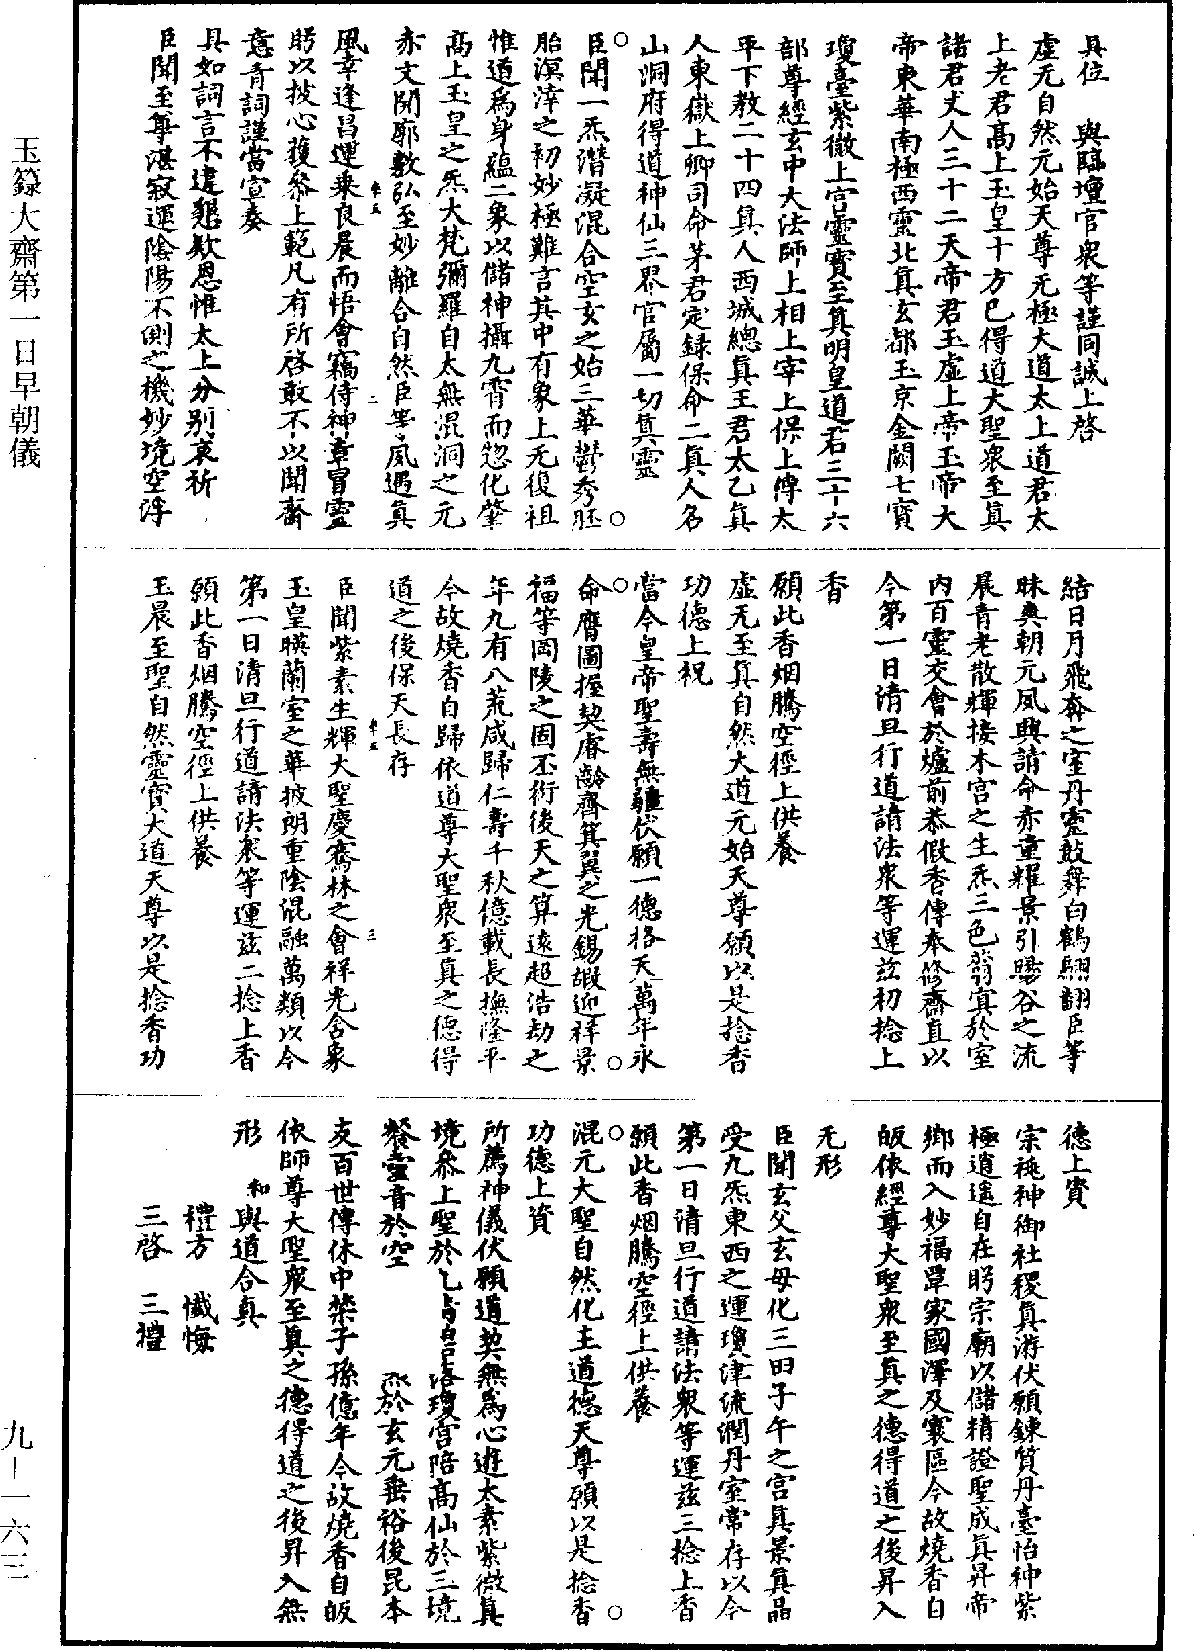 具位　與臨壇官衆等謹同誠上啓
虛无自然元始天尊无極大道太上道君太
上老君高上玉皇十方已得道大聖衆至真
諸君丈人三十二天帝君玉虛上帝玉帝大
帝東華南極西靈北真玄都玉京金闕七寶
瓊臺紫微上宮靈寶至真明皇道君三十六
部尊經玄中大法師上相上宰上保上傅太
平下教二十四真人西城總真王君太乙真
人東嶽上卿司命茅君定録保命二真人名
山洞府得道神仙三界官屬一切真靈
臣聞一炁潛凝混合空玄之始三華鬱秀胚
胎溟涬之初妙極難言其中有象上无復祖
惟道爲身蘊二象以儲神攝九霄而惣化肇
高上玉皇之炁大梵彌羅自太無混洞之元
赤文開廓敷弘至妙離合自然臣等夙遇真
風幸逢昌運乗良晨而悟會竊侍神章冒靈
眄以披心復叅上範凡有所啓敢不以聞齋
意青詞謹當宣奏
具如詞言不違懇欵恩惟太上分别哀祈
臣聞至尊湛寂運陰陽不測之機妙境空浮
結日月飛奔之室丹靈鼓舞白鶴翺翻臣等
昧爽朝元夙興請命赤童耀景引暘谷之流
晨青老散輝接木宮之生炁三色翳寘於室
内百靈交會於爐前恭假香傳奉修齋直以
今第一日清旦行道請法衆等運兹初捻上
香
願此香烟騰空徑上供養
虛无至真自然大道元始天尊願以是捻香
功德上祝
當今皇帝聖壽無疆伏願一德格天萬年永
命膺圖握契睿齡齊箕翼之光錫嘏迎祥景
福等岡陵之固丕衍後天之算遠超浩劫之
年九有八荒咸歸仁壽千秋億載長撫隆平
今故燒香自歸依道尊大聖衆至真之德得
道之後保天長存
臣聞紫素生輝大聖慶騫林之會祥光含象
玉皇暎蘭室之華披朗重陰混融萬類以今
第一日清旦行道請法衆等運兹二捻上香
願此香烟騰空徑上供養
玉晨至聖自然靈寶大道天尊以是捻香功
德上賫
宗祧神御社稷真游伏願鍊質丹臺怡神紫
極逍遥自在眄宗廟以儲精證聖成真昇帝
鄉而入妙福覃家國澤及寰區今故燒香自
皈依經尊大聖衆至真之德得道之後昇入
无形
臣聞玄父玄母化三田子午之宮真景真晶
受九炁東西之運瓊津流潤丹室常存以今
第一日清旦行道請法衆等運兹三捻上香
願此香烟騰空徑上供養
混元大聖自然化主道德天尊願以是捻香
功德上資
所薦神儀伏願道契無爲心遊太素紫微真
境叅上聖於
瓊宮陪高仙於三境
餐靈音於空
於玄元垂裕後昆本
支百世傳休中禁子孫億年今故燒香自皈
依師尊大聖衆至真之德得道之後昇入無
形　和　與道合真
禮方　懺悔
三啓　三禮
玉籙大齋第一日早朝儀
九－一六三